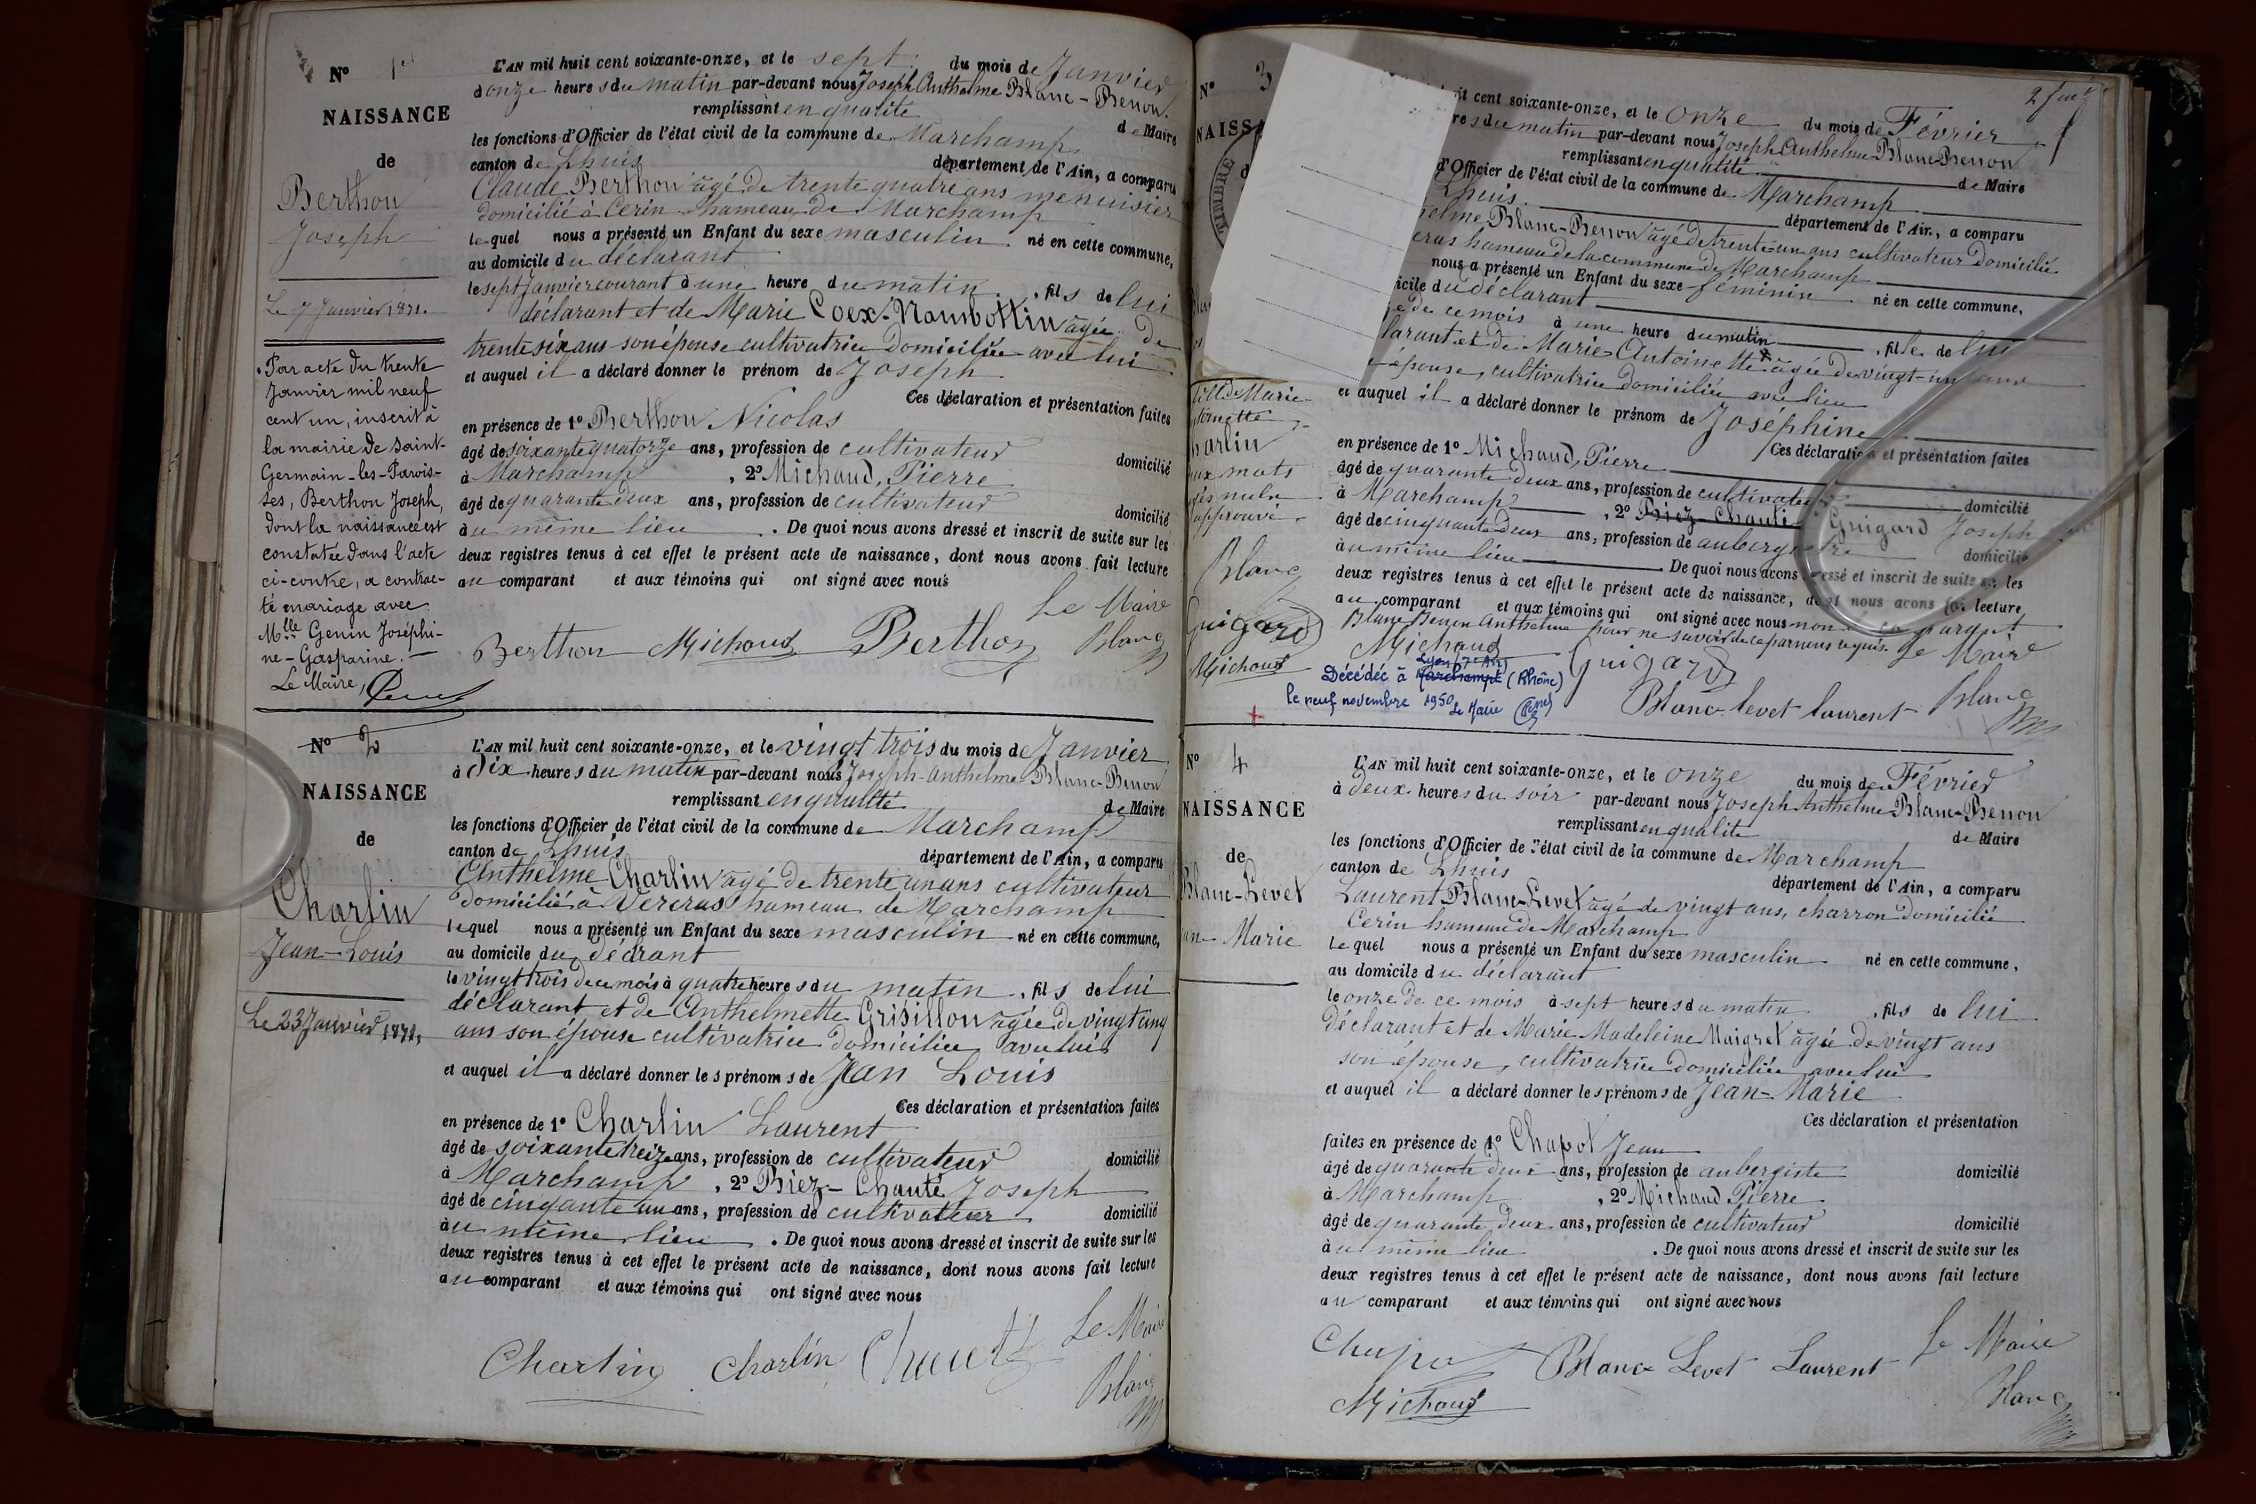 N° 1er
NAISSANCE
de
Berthon
Joseph
Le 7 Janvier 1871.
Par acte du trente
Janvier mil neuf
cent un, inscrit à
la mairie de Saint-
Germain-les-Parois-
ses, Berthon Joseph,
dont la naissance est
constatée dans l'acte
ci-contre, a contrac-
té mariage avec
Mlle Genin Joséphi-
ne-Gasparine.
Le Maire,
L'AN mil huit cent soixante-onze, et le sept du mois de Janvier
à onze heures du matin par-devant nous Joseph Anthelme Blanc-Benon
remplissant en qualité de Maire
les fonctions d'Officier de l'état civil de la commune de Marchamp
canton de Lhuis département de l'Ain, a comparu
Claude Berthon âgé de trente quatre ans menuisier
domicilié à Cerin hameau de Marchamp
lequel nous a présenté un Enfant du sexe masculin né en cette commune,
au domicile du déclarant
le sept Janvier courant à une heure du matin, fils de lui
déclarant et de Marie Coex-Nambottin âgée de
trente six ans son épouse cultivatrice domiciliée avec lui
et auquel il a déclaré donner le prénom de Joseph
Ces déclaration et présentation faites
en présence de 1° Berthon Nicolas
âgé de soixante quatorze ans, profession de cultivateur domicilié
à Marchamp, 2° Michaud, Pierre
âgé de quarante deux ans, profession de cultivateur domicilié
au même lieu. De quoi nous avons dressé et inscrit de suite sur les
deux registres tenus à cet effet le présent acte de naissance, dont nous avons fait lecture
au comparant et aux témoins qui ont signé avec nous
Le Maire
Berthon Michaud Berthon Blanc
N° 2
NAISSANCE
de
Charlin
Jean-Louis
Le 23 Janvier 1871.
L'AN mil huit cent soixante-onze, et le vingt trois du mois de Janvier
à Dix heures du matin par-devant nous Joseph-Anthelme Blanc-Benon
remplissant en qualité de Maire
les fonctions d'Officier de l'état civil de la commune de Marchamp
canton de Lhuis département de l'Ain, a comparu
Anthelme Charlin âgé de trente un ans cultivateur
domicilié à Vercras hameau de Marchamp
lequel nous a présenté un Enfant du sexe masculin né en cette commune,
au domicile du décrant
le vingt trois de ce mois à quatre heures du matin, fils de lui
déclarant et de Anthelmette Grisillon âgée de vingt cinq
ans son épouse cultivatrice domiciliée avec lui
et auquel il a déclaré donner les prénoms de Jean Louis
Ces déclaration et présentation faites
en présence de 1° Charlin Laurent
âgé de soixante treize ans, profession de cultivateur domicilié
à Marchamp, 2° Briez-Chanté Joseph
âgé de cinqante un ans, profession de cultivateur domicilié
au même lieu. De quoi nous avons dressé et inscrit de suite sur les
deux registres tenus à cet effet le présent acte de naissance, dont nous avons fait lecture
au comparant et aux témoins qui ont signé avec nous
Le Maire
Charlin Charlin Blanc
N° 3
NAISS
TIMBRE
Marie
Charlin
mots
nuls
approuvé
Blanc
Guigard
Michaud
2
cent soixante-onze, et le onze du mois de Février
du matin par-devant nous Joseph Anthelme Blanc-Benon
remplissant en qualité de Maire
d'Officier de l'état civil de la commune de Marchamp
Lhuis département de l'Ain, a comparu
Blanc-Benon âgé de trente-un ans cultivateur domicilié
hameau de la commune de Marchamp
nous a présenté un Enfant du sexe féminin né en cette commune,
du déclarant
de ce mois à une heure du matin, fille de lui
et de Marie Antoinette âgée de vingt-un ans
épouse, cultivatrice domiciliée avec lieu
et auquel il a déclaré donner le prénom de Joséphine
Ces déclaration et présentation faites
en présence de 1° Michaud, Pierre
âgé de quarante deux ans, profession de cultivateur domicilié
à Marchamp, 2° Briez-Chanté Guigard Joseph
âgé de cinquante deux ans, profession de aubergiste domicilié
au même lieu De quoi nous avons dressé et inscrit de suite sur les
deux registres tenus à cet effet le présent acte de naissance, dont nous avons fait lecture
au comparant et aux témoins qui ont signé avec nous non le comparant
Blanc Benon Anthelme pour ne savoir de ce par nous requis. Le Maire
Michaud Guigard
Blanc-levet laurent Blanc
Décédée à Marchampt Lyon (7e Arr) (Rhône)
le neuf novembre 1950 Le Maire
N° 4
NAISSANCE
de
Blanc-Levet
Marie
L'AN mil huit cent soixante-onze, et le onze du mois de Février
à deux heures du soir par-devant nous Joseph Anthelme Blanc-Benon
remplissant en qualité de Maire
les fonctions d'Officier de l'état civil de la commune de Marchamp
canton de Lhuis département de l'Ain, a comparu
Laurent Blanc-Levet âgé de vingt ans, charron domicilié
Cerin hameau de Marchamp
lequel nous a présenté un Enfant du sexe masculin né en cette commune,
au domicile du déclarant
le onze de ce mois à sept heures du matin, fils de lui
déclarant et de Marie Madeleine Maigret âgée de vingt ans
son épouse, cultivatrice domiciliée avec lui
et auquel il a déclaré donner les prénoms de Jean-Marie
Ces déclaration et présentation
faites en présence de 1° Chapot Jean
âgé de quarante deux ans, profession de aubergiste domicilié
à Marchamp, 2° Michaud Pierre
âgé de quarante deux ans, profession de cultivateur domicilié
au même lieu. De quoi nous avons dressé et inscrit de suite sur les
deux registres tenus à cet effet le présent acte de naissance, dont nous avons fait lecture
au comparant et aux témoins qui ont signé avec nous
Blanc Levet Laurent Le Maire
Michaud Blanc